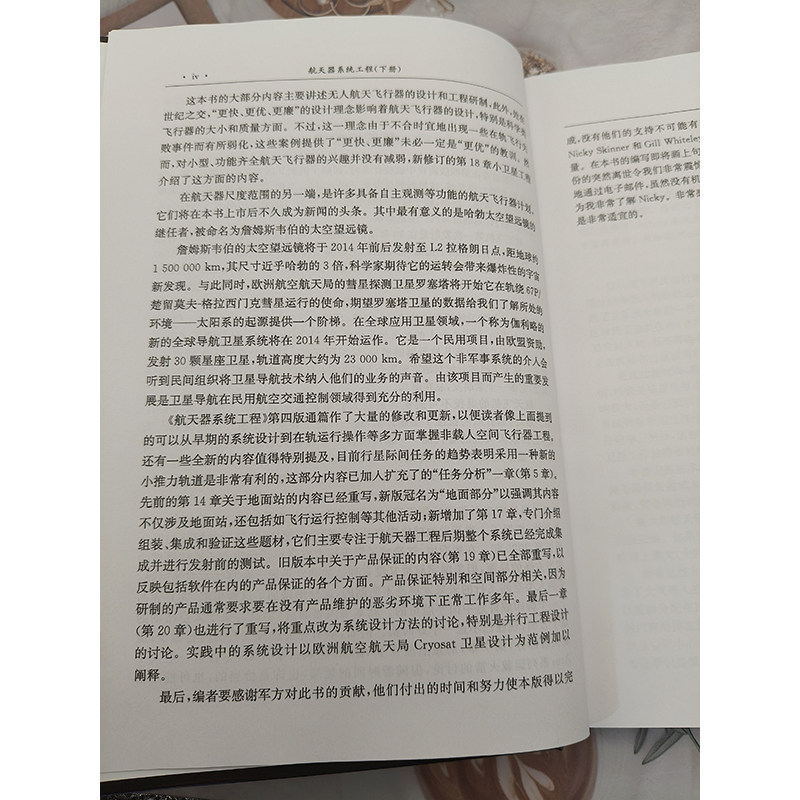 · iv ·
航天器系统工程(下册)
这本书的大部分内容主要讲述无人航天飞行器的设计和工程研制,此外,
世纪之交,“更快、更优、更廉”的设计理念影响着航天飞行器的设计,特别是科学类
飞行器的大小和质量方面。不过,这一理念由于不合时宜地出现一些在轨飞行失
败事件而有所弱化,这些案例提供了“更快、更廉”未必一定是“更优”的教训。然
而,对小型、功能齐全航天飞行器的兴趣并没有减弱,新修订的第 18 章小卫星工程
介绍了这方面的内容。
在航天器尺度范围的另一端,是许多具备自主观测等功能的航天飞行器计划,
它们将在本书上市后不久成为新闻的头条。其中最有意义的是哈勃太空望远镜的
继任者,被命名为詹姆斯韦伯的太空望远镜。
詹姆斯韦伯的太空望远镜将于 2014 年前后发射至 L2 拉格朗日点,距地球约
1 500 000 km,其尺寸近乎哈勃的 3 倍,科学家期待它的运转会带来爆炸性的宇宙
新发现。与此同时,欧洲航空航天局的彗星探测卫星罗塞塔将开始它在轨绕 67P/
楚留莫夫-格拉西门克彗星运行的使命,期望罗塞塔卫星的数据给我们了解所处的
环境——太阳系的起源提供一个阶梯。在全球应用卫星领域,一个称为伽利略的
新的全球导航卫星系统将在 2014 年开始运作。它是一个民用项目,由欧盟资助,
发射 30 颗星座卫星,轨道高度大约为 23 000 km。希望这个非军事系统的介入会
听到民间组织将卫星导航技术纳入他们的业务的声音。由该项目而产生的重要发
展是卫星导航在民用航空交通控制领域得到充分的利用。
《航天器系统工程》第四版通篇作了大量的修改和更新,以便读者像上面提到
的可以从早期的系统设计到在轨运行操作等多方面掌握非载人空间飞行器工程。
还有一些全新的内容值得特别提及,目前行星际间任务的趋势表明采用一种新的
小推力轨道是非常有利的,这部分内容已加入扩充了的“任务分析”一章(第 5 章)。
先前的第 14 章关于地面站的内容已经重写,新版冠名为“地面部分”以强调其内容
不仅涉及地面站,还包括如飞行运行控制等其他活动;新增加了第 17 章,专门介绍
组装、集成和验证这些题材,它们主要专注于航天器工程后期整个系统已经完成集
成并进行发射前的测试。旧版本中关于产品保证的内容(第 19 章)已全部重写,以
反映包括软件在内的产品保证的各个方面。产品保证特别和空间部分相关,因为
研制的产品通常要求要在没有产品维护的恶劣环境下正常工作多年。最后一章
(第 20 章)也进行了重写,将重点改为系统设计方法的讨论,特别是并行工程设计
的讨论。实践中的系统设计以欧洲航空航天局 Cryosat 卫星设计为范例加以
阐释。
最后,编者要感谢军方对此书的贡献,他们付出的时间和努力使本版得以完
成,没有他们的支持不可能有
Nicky Skinner 和 Gill Whiteley
量。在本书的编写即将画上句
份的突然离世令我们非常震惊
地通过电子邮件,虽然没有机
为我非常了解 Nicky。非常
是非常适宜的。